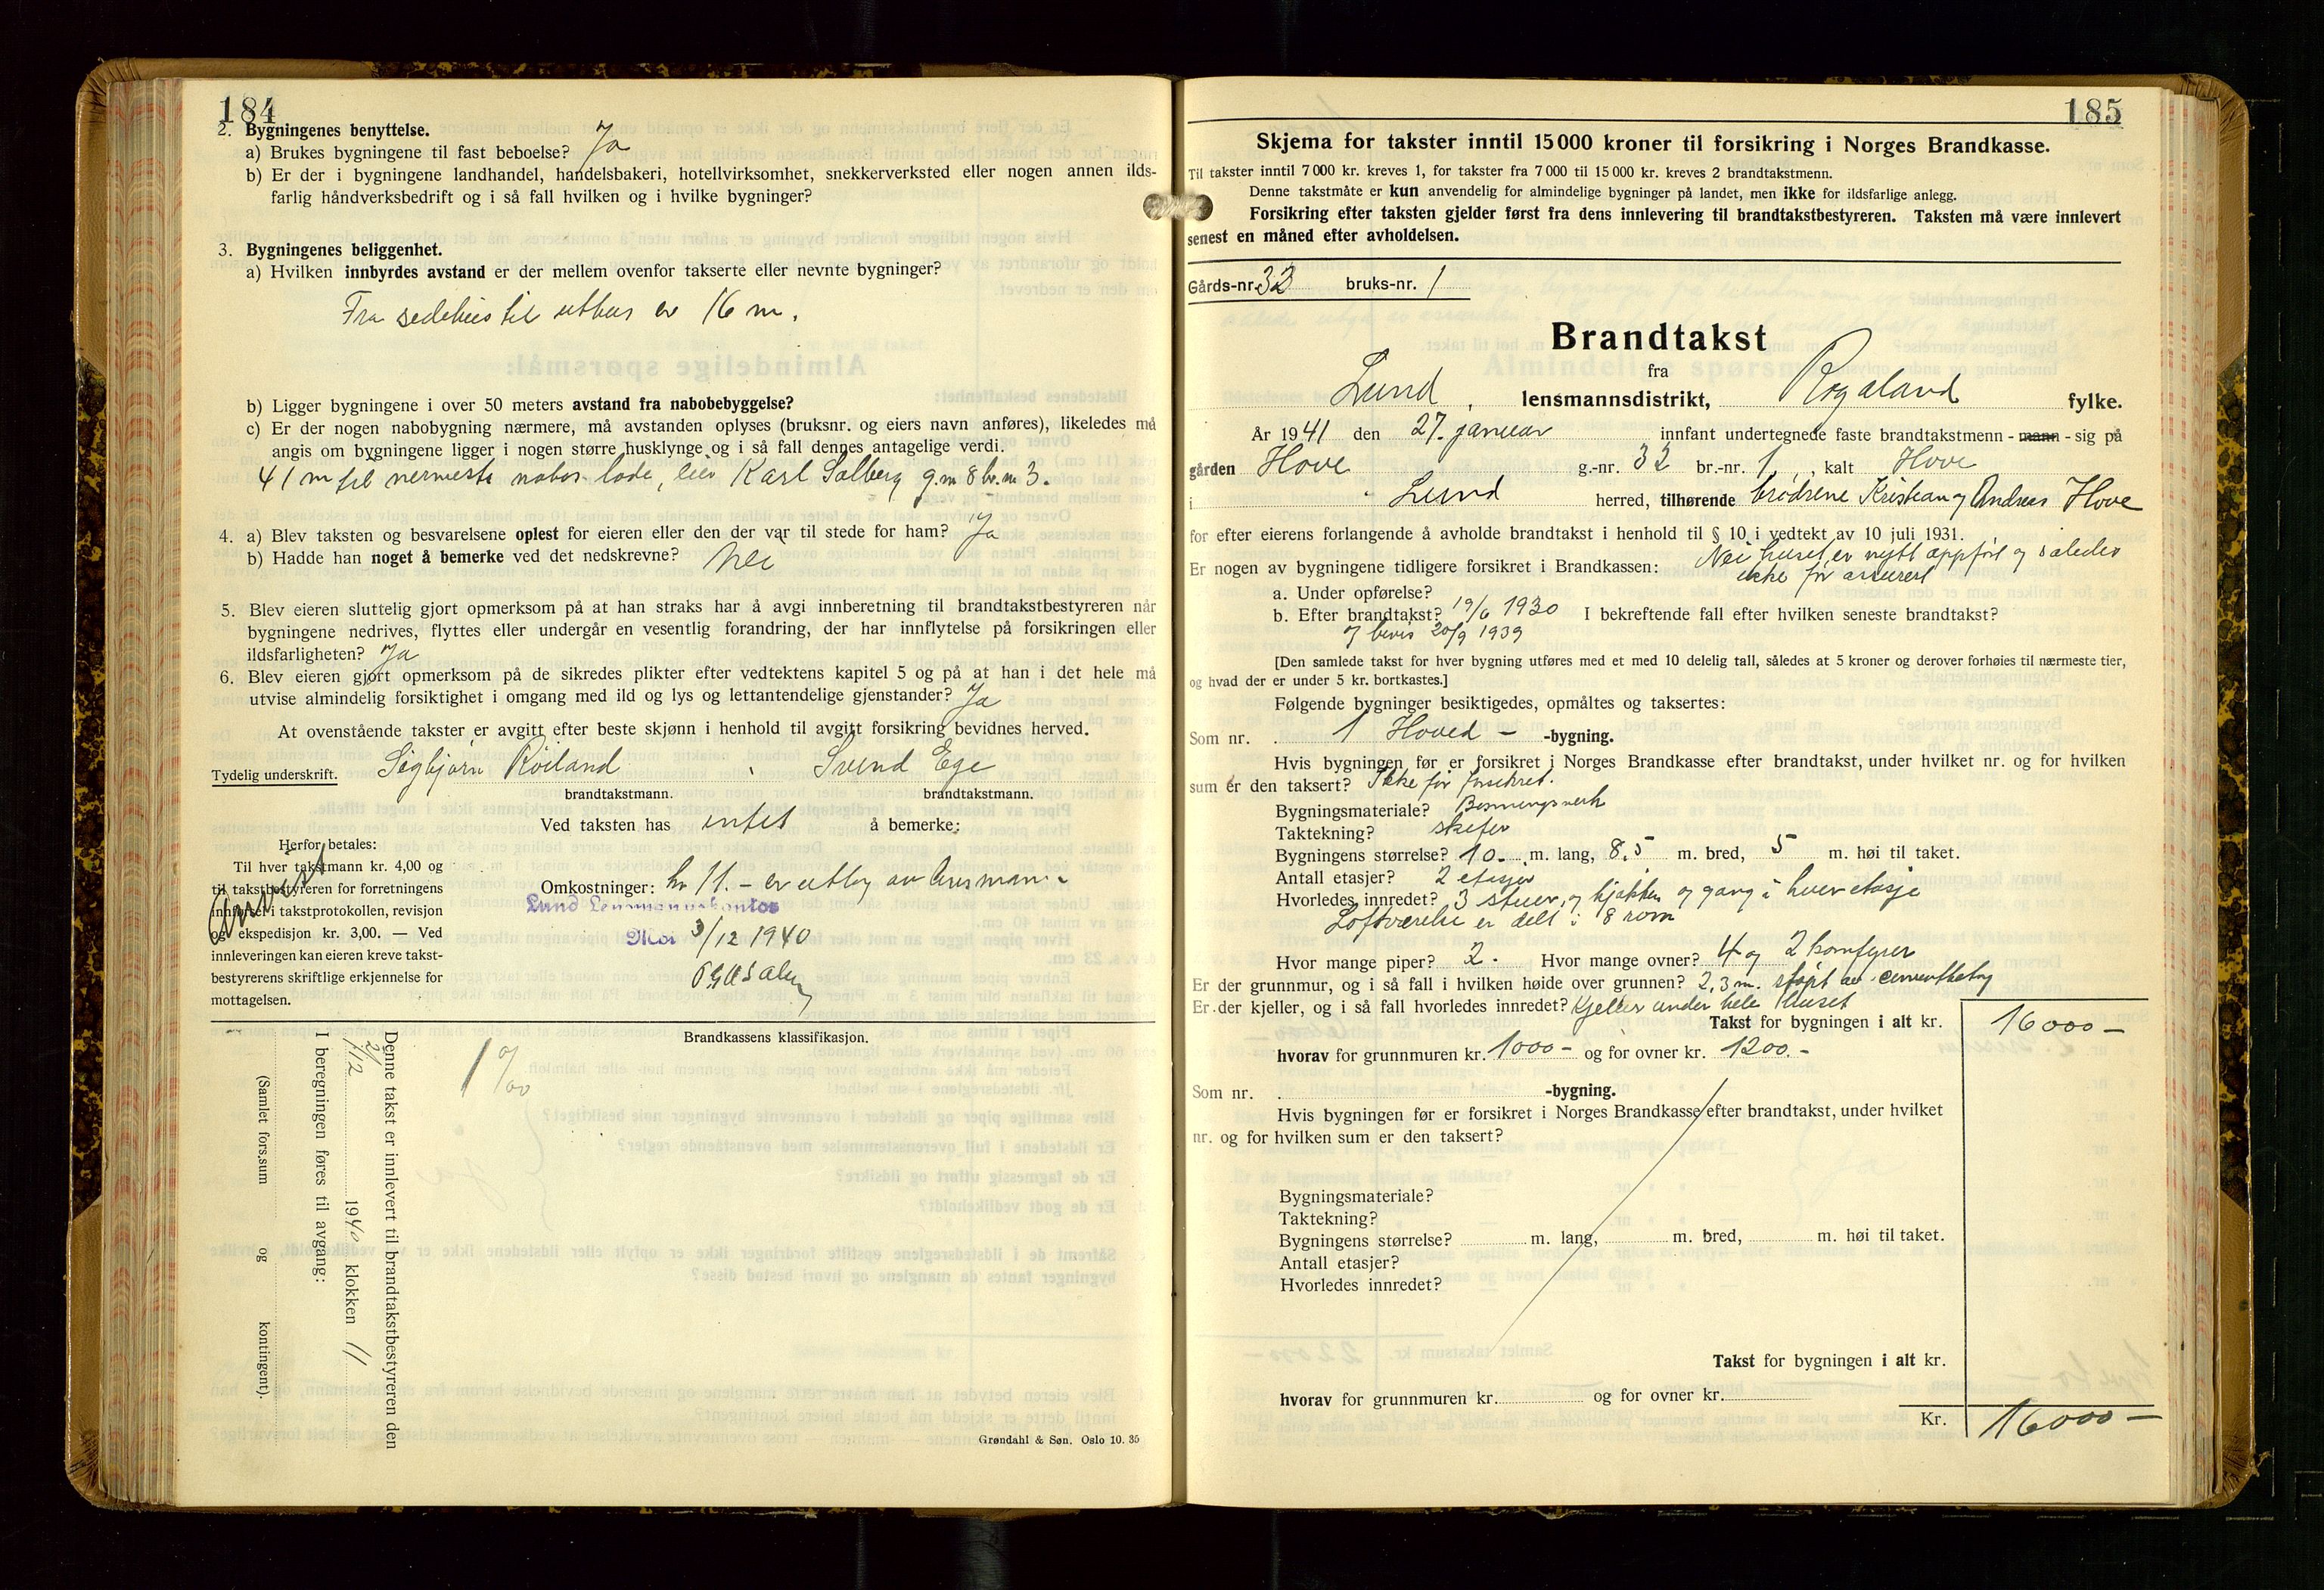 184
2. Bygningenes benyttelse.
a) Brukes bygningene til fast beboelse? Ja
b) Er der i bygningene landhandel, handelsbakeri, hotellvirksomhet, snekkerverksted eller nogen annen ilds-
farlig håndverksbedrift og i så fall hvilken og i hvilke bygninger?
3. Bygningenes beliggenhet.
a) Hvilken innbyrdes avstand er der mellem ovenfor takserte eller nevnte bygninger?
Fra sedehus til uthus er 16 m.
b) Ligger bygningene i over 50 meters avstand fra nabobebyggelse?
c) Er der nogen nabobygning nærmere, må avstanden oplyses (bruksnr. og eiers navn anføres), likeledes må
angis om bygningene ligger i nogen større husklynge og i så fall dennes antagelige verdi.
41 m til nermeste nabos lade, eier Karl Salberg g.nr 8 br.nr 3.
4. a) Blev taksten og besvarelsene oplest for eieren eller den der var til stede for ham? Ja
b) Hadde han noget å bemerke ved det nedskrevne? Nei
5. Blev eieren sluttelig gjort opmerksom på at han straks har å avgi innberetning til brandtakstbestyreren når
bygningene nedrives, flyttes eller undergår en vesentlig forandring, der har innflytelse på forsikringen eller
ildsfarligheten? Ja
6. Blev eieren gjort opmerksom på de sikredes plikter efter vedtektens kapitel 5 og på at han i det hele må
utvise almindelig forsiktighet i omgang med ild og lys og lettantendelige gjenstander? Ja
At ovenstående takster er avgitt efter beste skjønn i henhold til avgitt forsikring bevidnes herved.
Tydelig underskrift. Sigbjørn Röiland Svend Ege
brandtakstmann. brandtakstmann.
Ved taksten has intet å bemerke:
Herfor betales:
Til hver takstmann kr. 4,00 og
til takstbestyreren for forretningens
innførsel i takstprotokollen, revisjon
og ekspedisjon kr. 3,00. — Ved
innleveringen kan eieren kreve takst-
bestyrerens skriftlige erkjennelse for
mottagelsen.
Omkostninger: kr 11.- er utlagt av
Lund Lensmannskontor
Moi 3/12 1940
Brandkassens klassifikasjon.
1 ‰
Denne takst er innlevert til brandtakstbestyreren den
2/12 1940 klokken 11
I beregningen føres til avgang:
(Samlet fors.sum og kontingent).
Grøndahl & Søn. Oslo 10. 35
185
Skjema for takster inntil 15 000 kroner til forsikring i Norges Brandkasse.
Til takster inntil 7 000 kr. kreves 1, for takster fra 7 000 til 15 000 kr. kreves 2 brandtakstmenn.
Denne takstmåte er kun anvendelig for almindelige bygninger på landet, men ikke for ildsfarlige anlegg.
Forsikring efter taksten gjelder først fra dens innlevering til brandtakstbestyreren. Taksten må være innlevert
senest en måned efter avholdelsen.
Gårds-nr. 32 bruks-nr. 1
Brandtakst
fra
Lund lensmannsdistrikt, Rogaland fylke.
År 1941 den 27. januar innfant undertegnede faste brandtakstmenn - mann - sig på
gården Hove g.-nr. 32 br.-nr. 1, kalt Hove
i Lund herred, tilhørende brödrene Kristian og Andreas Hove
for efter eierens forlangende å avholde brandtakst i henhold til § 10 i vedtekt av 10 juli 1931.
Er nogen av bygningene tidligere forsikret i Brandkassen: Nei huset er nytt oppført og således
ikke før assurert
a. Under opførelse?
b. Efter brandtakst? 19/6 1930 I bekreftende fall efter hvilken seneste brandtakst?
og bevis 20/9 1939
[Den samlede takst for hver bygning utføres med et med 10 delelig tall, således at 5 kroner og derover forhøies til nærmeste tier,
og hvad der er under 5 kr. bortkastes.]
Følgende bygninger besiktigedes, opmåltes og taksertes:
Som nr. 1 Hoved - -bygning.
Hvis bygningen før er forsikret i Norges Brandkasse efter brandtakst, under hvilket nr. og for hvilken
sum er den taksert? Ikke før forsikret.
Bygningsmateriale? Bismingsverk
Taktekning? skifer
Bygningens størrelse? 10. m. lang, 8,5 m. bred, 5 m. høi til taket.
Antall etasjer? 2 etasjer
Hvorledes innredet? 3 stuer, og kjøkken og gang i hver etasje
Loftværelse er delt i 8 rom
Hvor mange piper? 2. Hvor mange ovner? 4 og 2 komfyrer
Er der grunnmur, og i så fall i hvilken høide over grunnen? 2,3 m. støpt av cementbetong
Er der kjeller, og i så fall hvorledes innredet? Kjeller under hele huset
Takst for bygningen i alt kr. 16000 —
hvorav for grunnmuren kr. 1000 - og for ovner kr. 1200.-
Som nr. -bygning.
Hvis bygningen før er forsikret i Norges Brandkasse efter brandtakst, under hvilket
nr. og for hvilken sum er den taksert?
Bygningsmateriale?
Taktekning?
Bygningens størrelse? m. lang, m. bred, m. høi til taket.
Antall etasjer?
Hvorledes innredet?
Takst for bygningen i alt kr.
hvorav for grunnmuren kr. og for ovner kr.
Kr. 16000 —